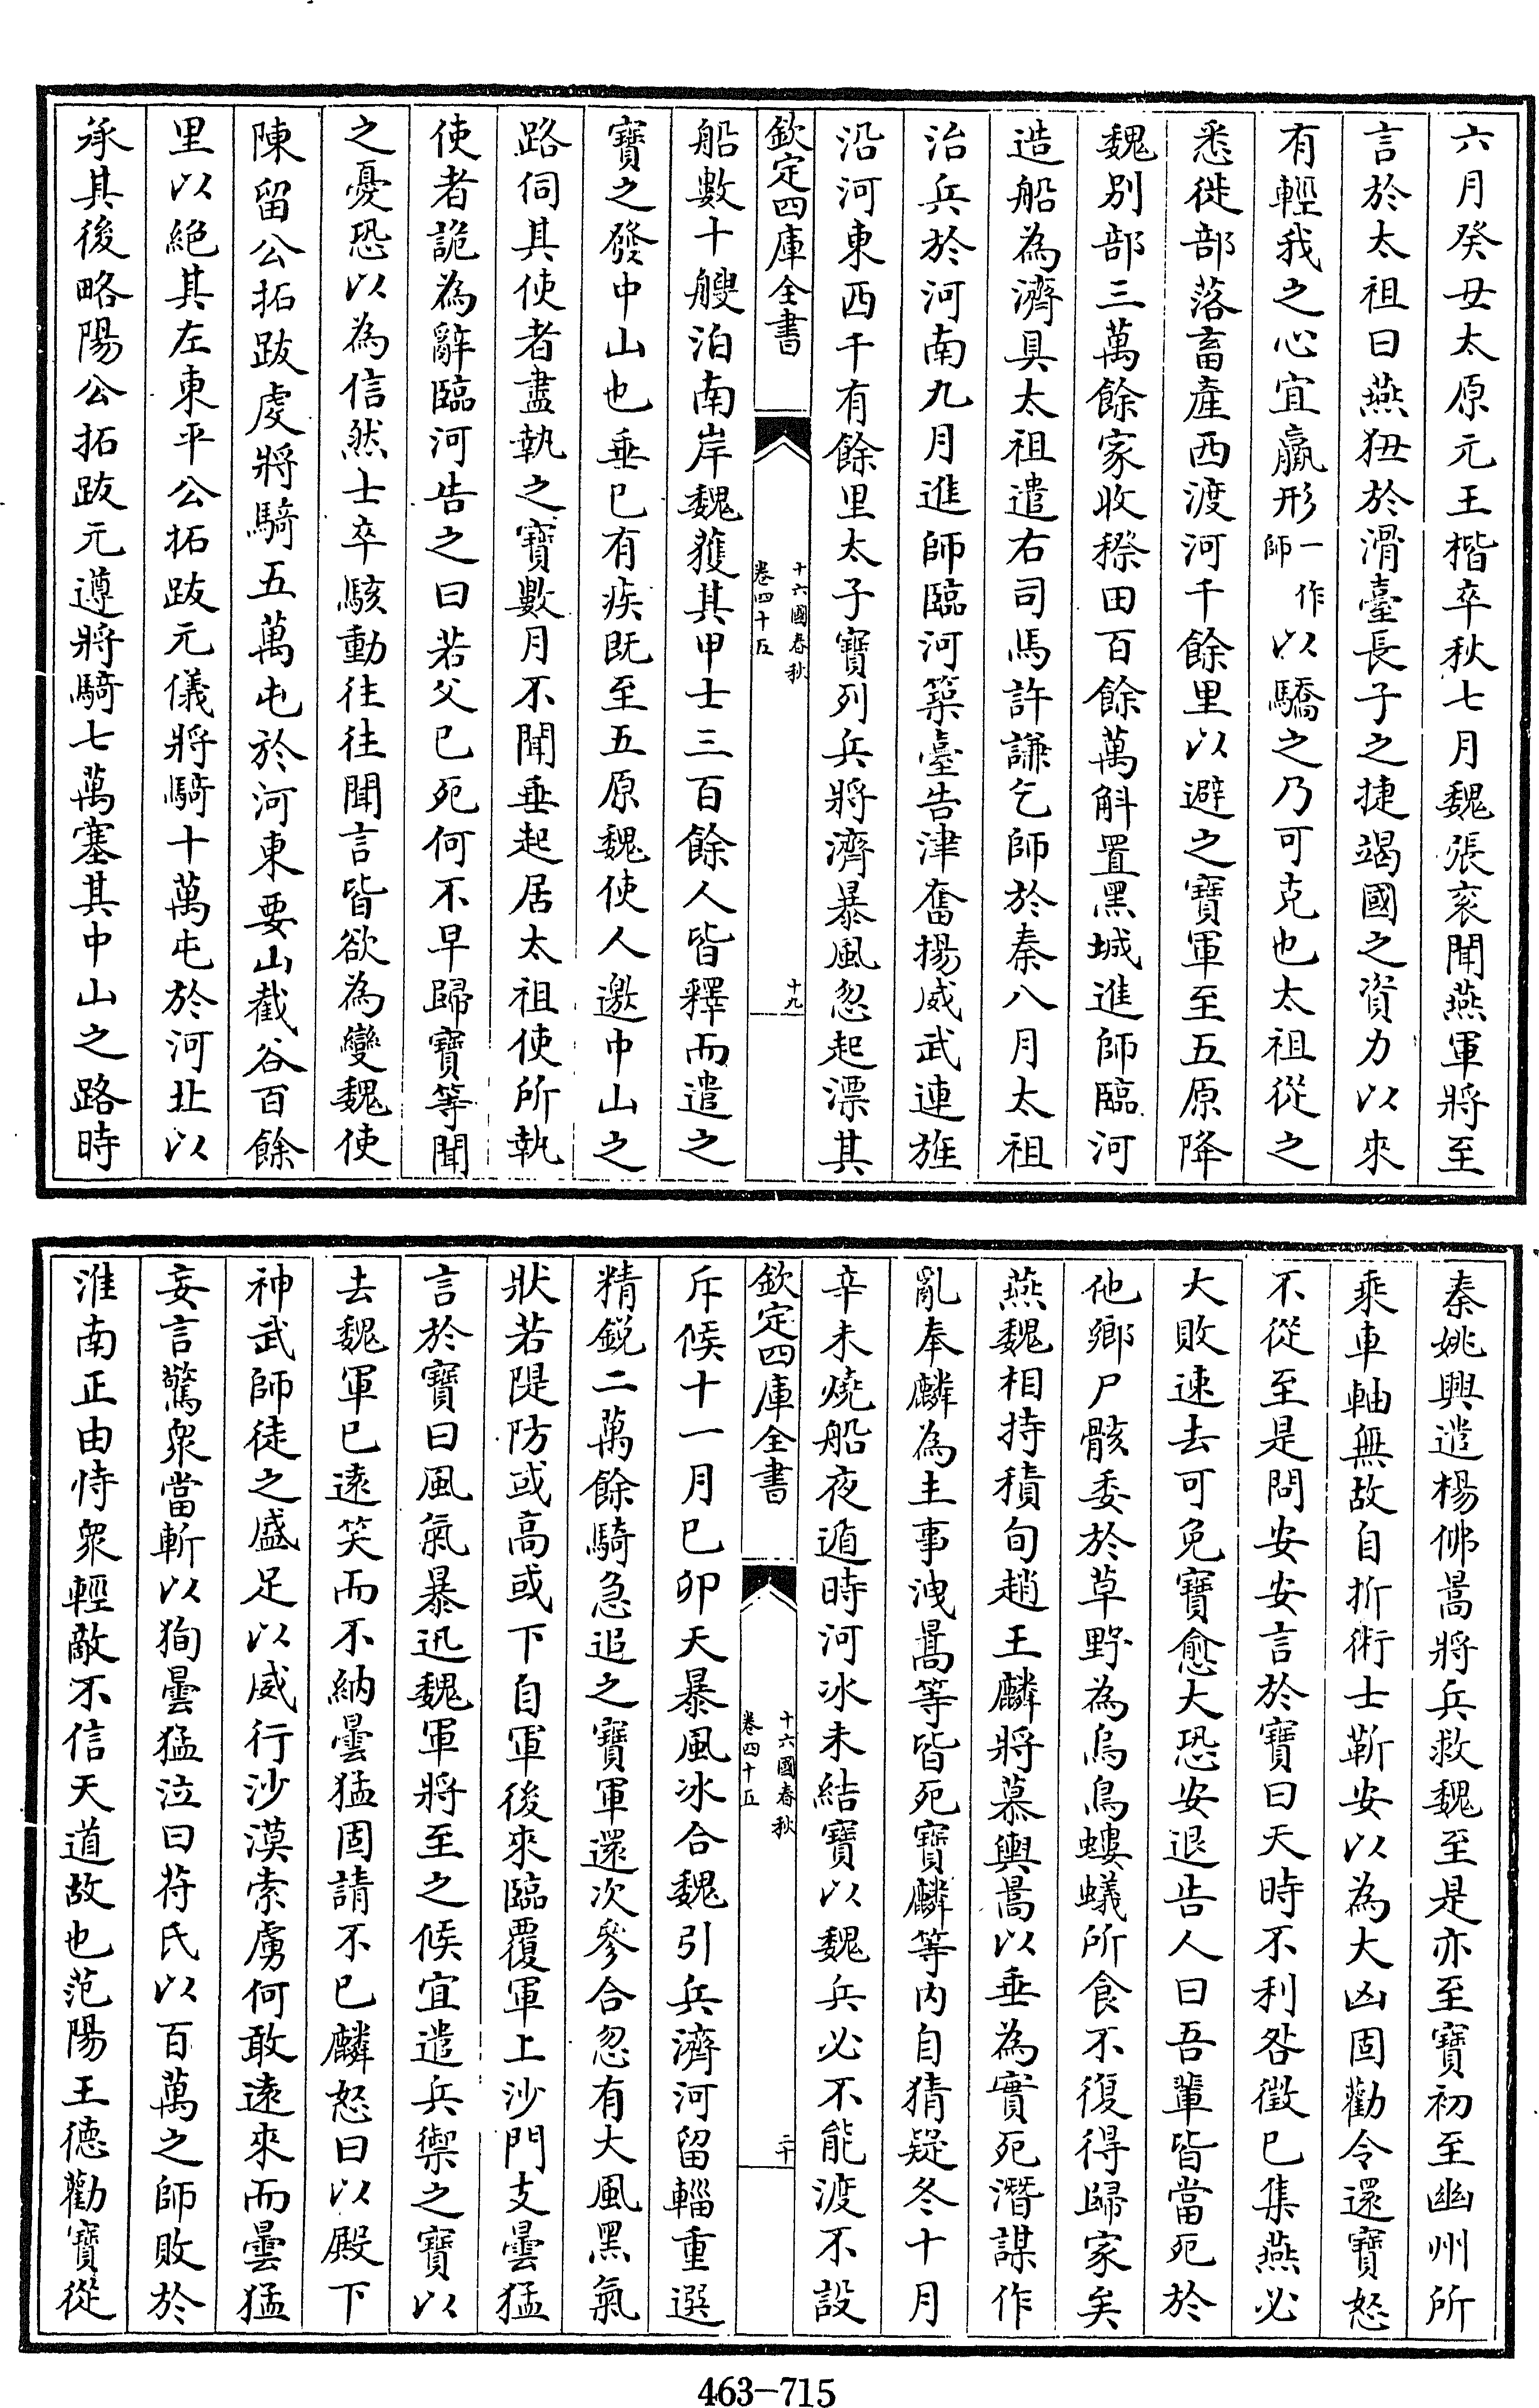 六月癸丑太原元王楷卒秋七月魏張袞聞燕軍將至
言於太祖曰燕狃於滑臺長子之捷竭國之資力以來
有輕我之心宜羸形一作師以驕之乃可克也太祖從之
悉徙部落畜產西渡河千餘里以避之寶軍至五原降
魏別部三萬餘家收穄田百餘萬斛置黑城進師臨河
造船為濟具太祖遣右司馬許謙乞師於秦八月太祖
治兵於河南九月進師臨河築臺告津奮揚威武連旌
沿河東西千有餘里太子寶列兵將濟暴風忽起漂其
欽定四庫全書
十六國春秋
卷四十五
十九
船數十艘泊南岸魏獲其甲士三百餘人皆釋而遣之
寶之發中山也垂已有疾既至五原魏使人邀中山之
路伺其使者盡執之寶數月不聞垂起居太祖使所執
使者詭為辭臨河告之曰若父已死何不早歸寶等聞
之憂恐以為信然士卒駭動往往聞言皆欲為變魏使
陳留公拓跋虔將騎五萬屯於河東要山截谷百餘
里以絕其左東平公拓跋元儀將騎十萬屯於河北以
承其後略陽公拓跋元遵將騎七萬塞其中山之路時
秦姚興遣楊佛嵩將兵救魏至是亦至寶初至幽州所
乘車軸無故自折術士靳安以為大凶固勸令還寶怒
不從至是問安安言於寶曰天時不利咎徵已集燕必
大敗速去可免寶愈大恐安退告人曰吾輩皆當死於
他鄉尸骸委於草野為烏鳥螻蟻所食不復得歸家矣
燕魏相持積旬趙王麟將慕輿嵩以垂為實死潛謀作
亂奉麟為主事洩嵩等皆死寶麟等內自猜疑冬十月
辛未燒船夜遁時河冰未結寶以魏兵必不能渡不設
欽定四庫全書
十六國春秋
卷四十五
二十
斥候十一月己卯天暴風冰合魏引兵濟河留輜重選
精銳二萬餘騎急追之寶軍還次參合忽有大風黑氣
狀若隄防或高或下自軍後來臨覆軍上沙門支曇猛
言於寶曰風氣暴迅魏軍將至之候宜遣兵禦之寶以
去魏軍已遠笑而不納曇猛固請不已麟怒曰以殿下
神武師徒之盛足以威行沙漠索虜何敢遠來而曇猛
妄言驚衆當斬以狥曇猛泣曰苻氏以百萬之師敗於
淮南正由恃衆輕敵不信天道故也范陽王德勸寶從
463-715